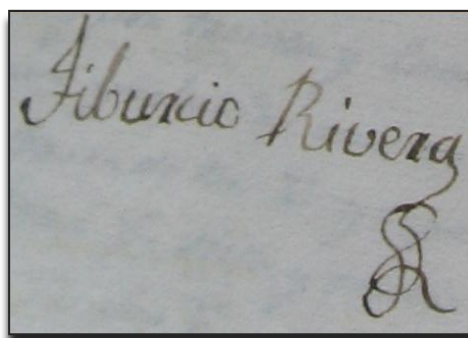 Tiburcio Rivera